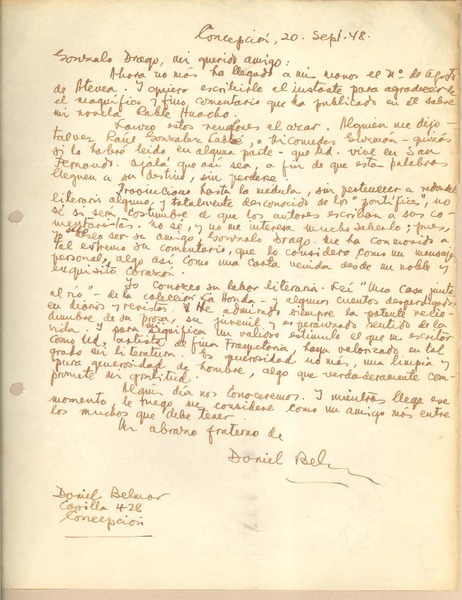 Concepción, 20. Sept. 48.
Gonzalo Drago, mi querido amigo:
Ahora no más ha llegado a mis manos el Nº de Agosto
de Atenea. I quiero escribirle al instante para agradecerle
el magnífico y fino comentario que ha publicado en él sobre
mi novela Roble Huacho.
Lanzo estos renglones al azar. Alguien me dijo-
talvez Raúl González Labbé, o Nicomedes Guzmán- quizás
si lo habré leído en alguna parte- que Ud. vive en San
Fernando. Ojalá que así sea, a fin de que estas palabras
lleguen a su destino, sin perderse.
Provinciano hasta la médula, sin pertenecer a redondel
literario alguno, y totalmente desconocido de los "pontífices", no
sé si será costumbre el que los autores escriban a sus co-
mentaristas. No sé, y no me interesa mucho saberlo; pues,
yo deseo ser su amigo, Gonzalo Drago. Me ha conmovido a
tal extremo su comentario, que lo considero como un mensaje
personal, algo así como una carta venida desde su noble y
exquisito corazón.
Yo conozco su labor literaria. Leí "Una Casa junto
al río" - de la colección La Honda - y algunos cuentos desperdigados
en diarios y revistas. He admirado siempre la potente recie-
dumbre de su prosa, su juvenil y esperanzado sentido de la
vida. I para mí significa un valioso estímulo el que un escritor
como Ud, artista de fina trayectoria, haya valorizado en tal
grado mi literatura. Es generosidad no más, una limpia y
pura generosidad de hombre, algo que verdaderamente com-
promete mi gratitud.
Algún día nos conoceremos. I mientras llega ese
momento, le ruego me considere como un amigo más entre
los muchos que debe tener.
Un abrazo fraterno de
Daniel Belmar
Daniel Belmar
Casilla 428
Concepción